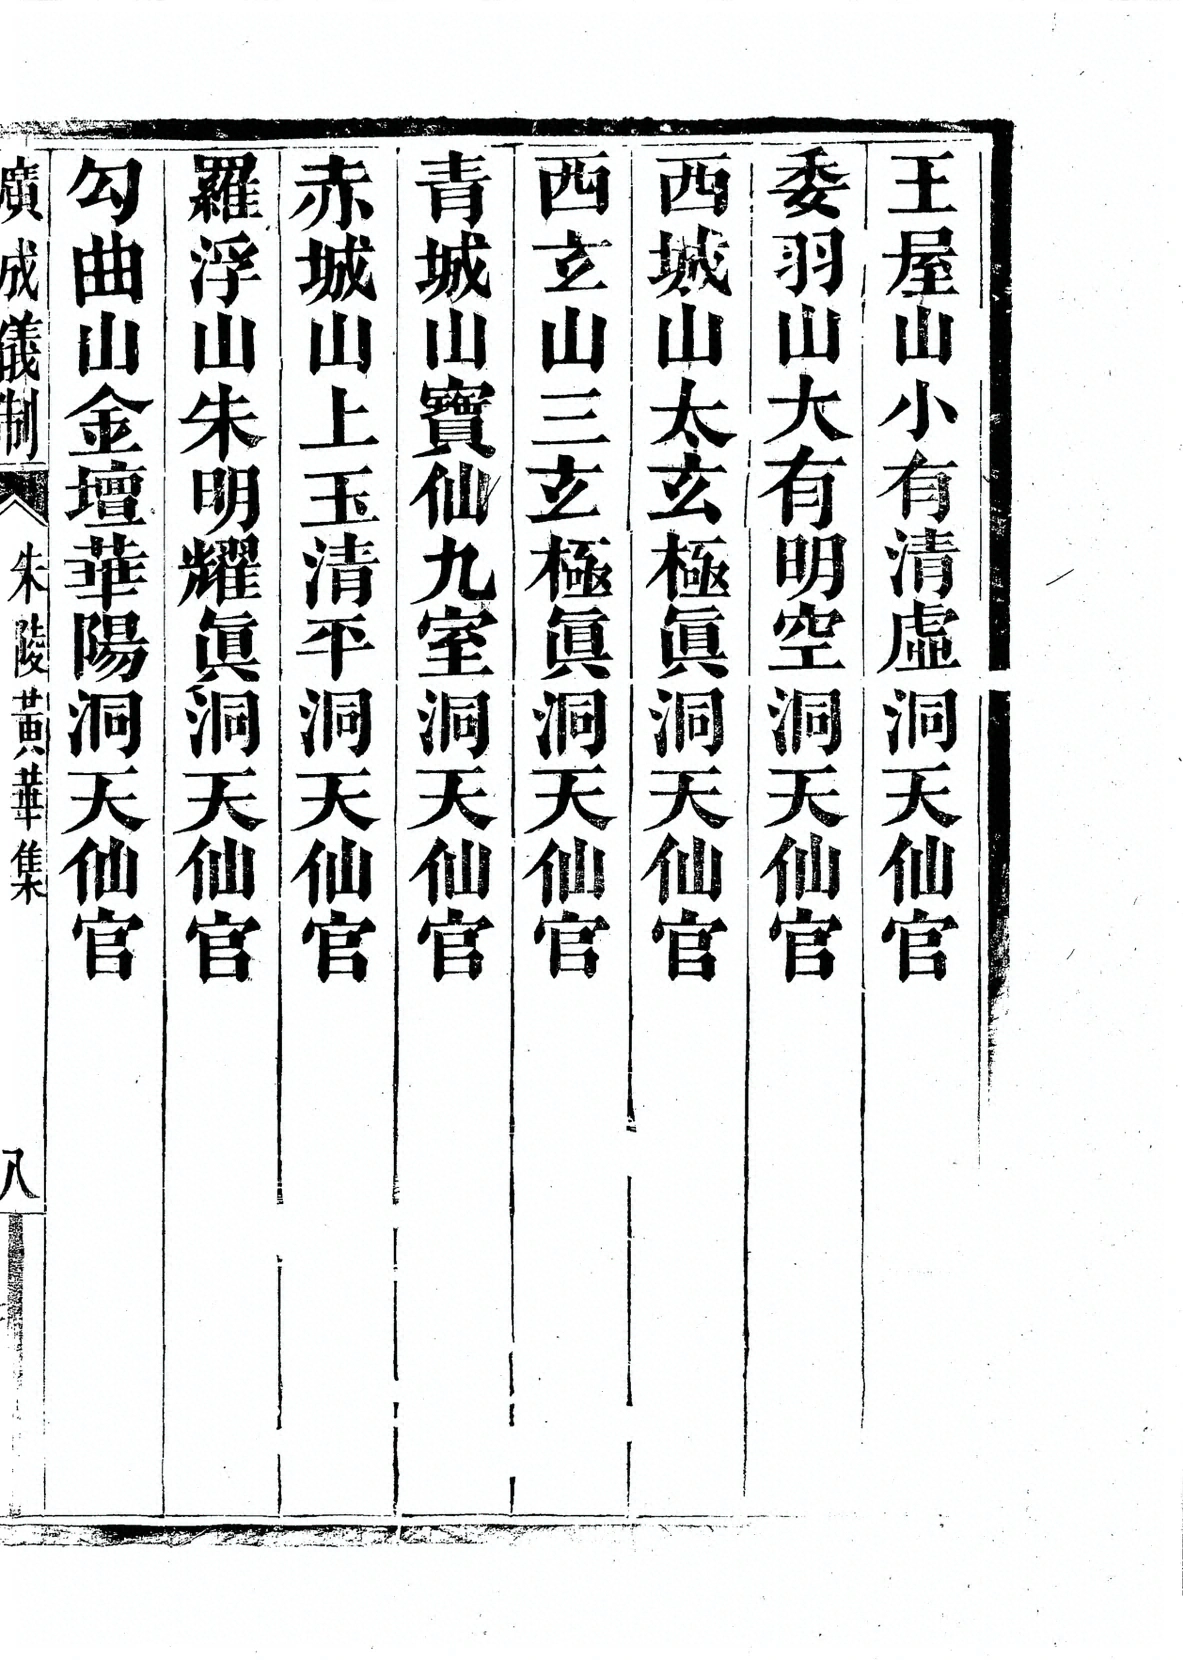 王屋山小有清虛洞天仙官
委羽山大有明空洞天仙官
西城山太玄極眞洞天仙官
西玄山三玄極眞洞天仙官
青城山寶仙九室洞天仙官
赤城山上玉清平洞天仙官
羅浮山朱明耀眞洞天仙官
勾曲山金壇華陽洞天仙官
廣成儀制 朱陵黃華集 八